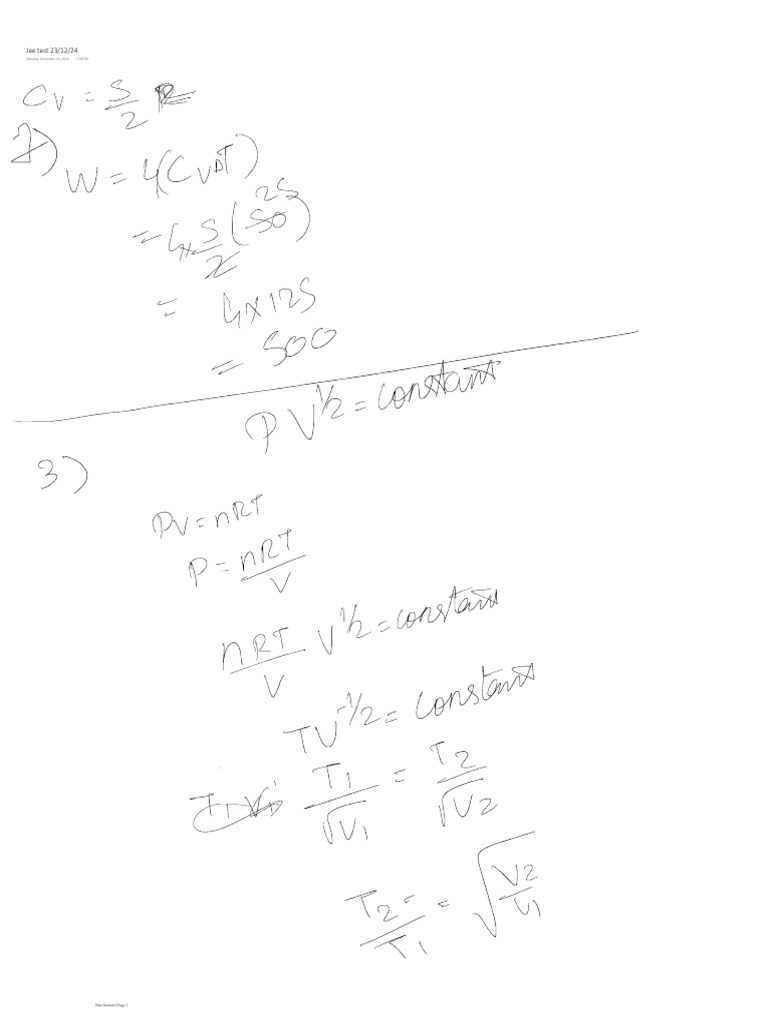 Jee test 23/12/24
Monday, December 23, 2024 7:28 PM
C_V = 5/2 R
7)
W = 4(C_VΔT)
= 4×5/2 (50) 25
= 4×125
= 500
PV^1/2 = constant
3)
PV = nRT
P = nRT/V
nRT/V V^1/2 = constant
TV^-1/2 = constant
T_1/√V_1 = T_2/√V_2
T_2/T_1 = √V_2/V_1